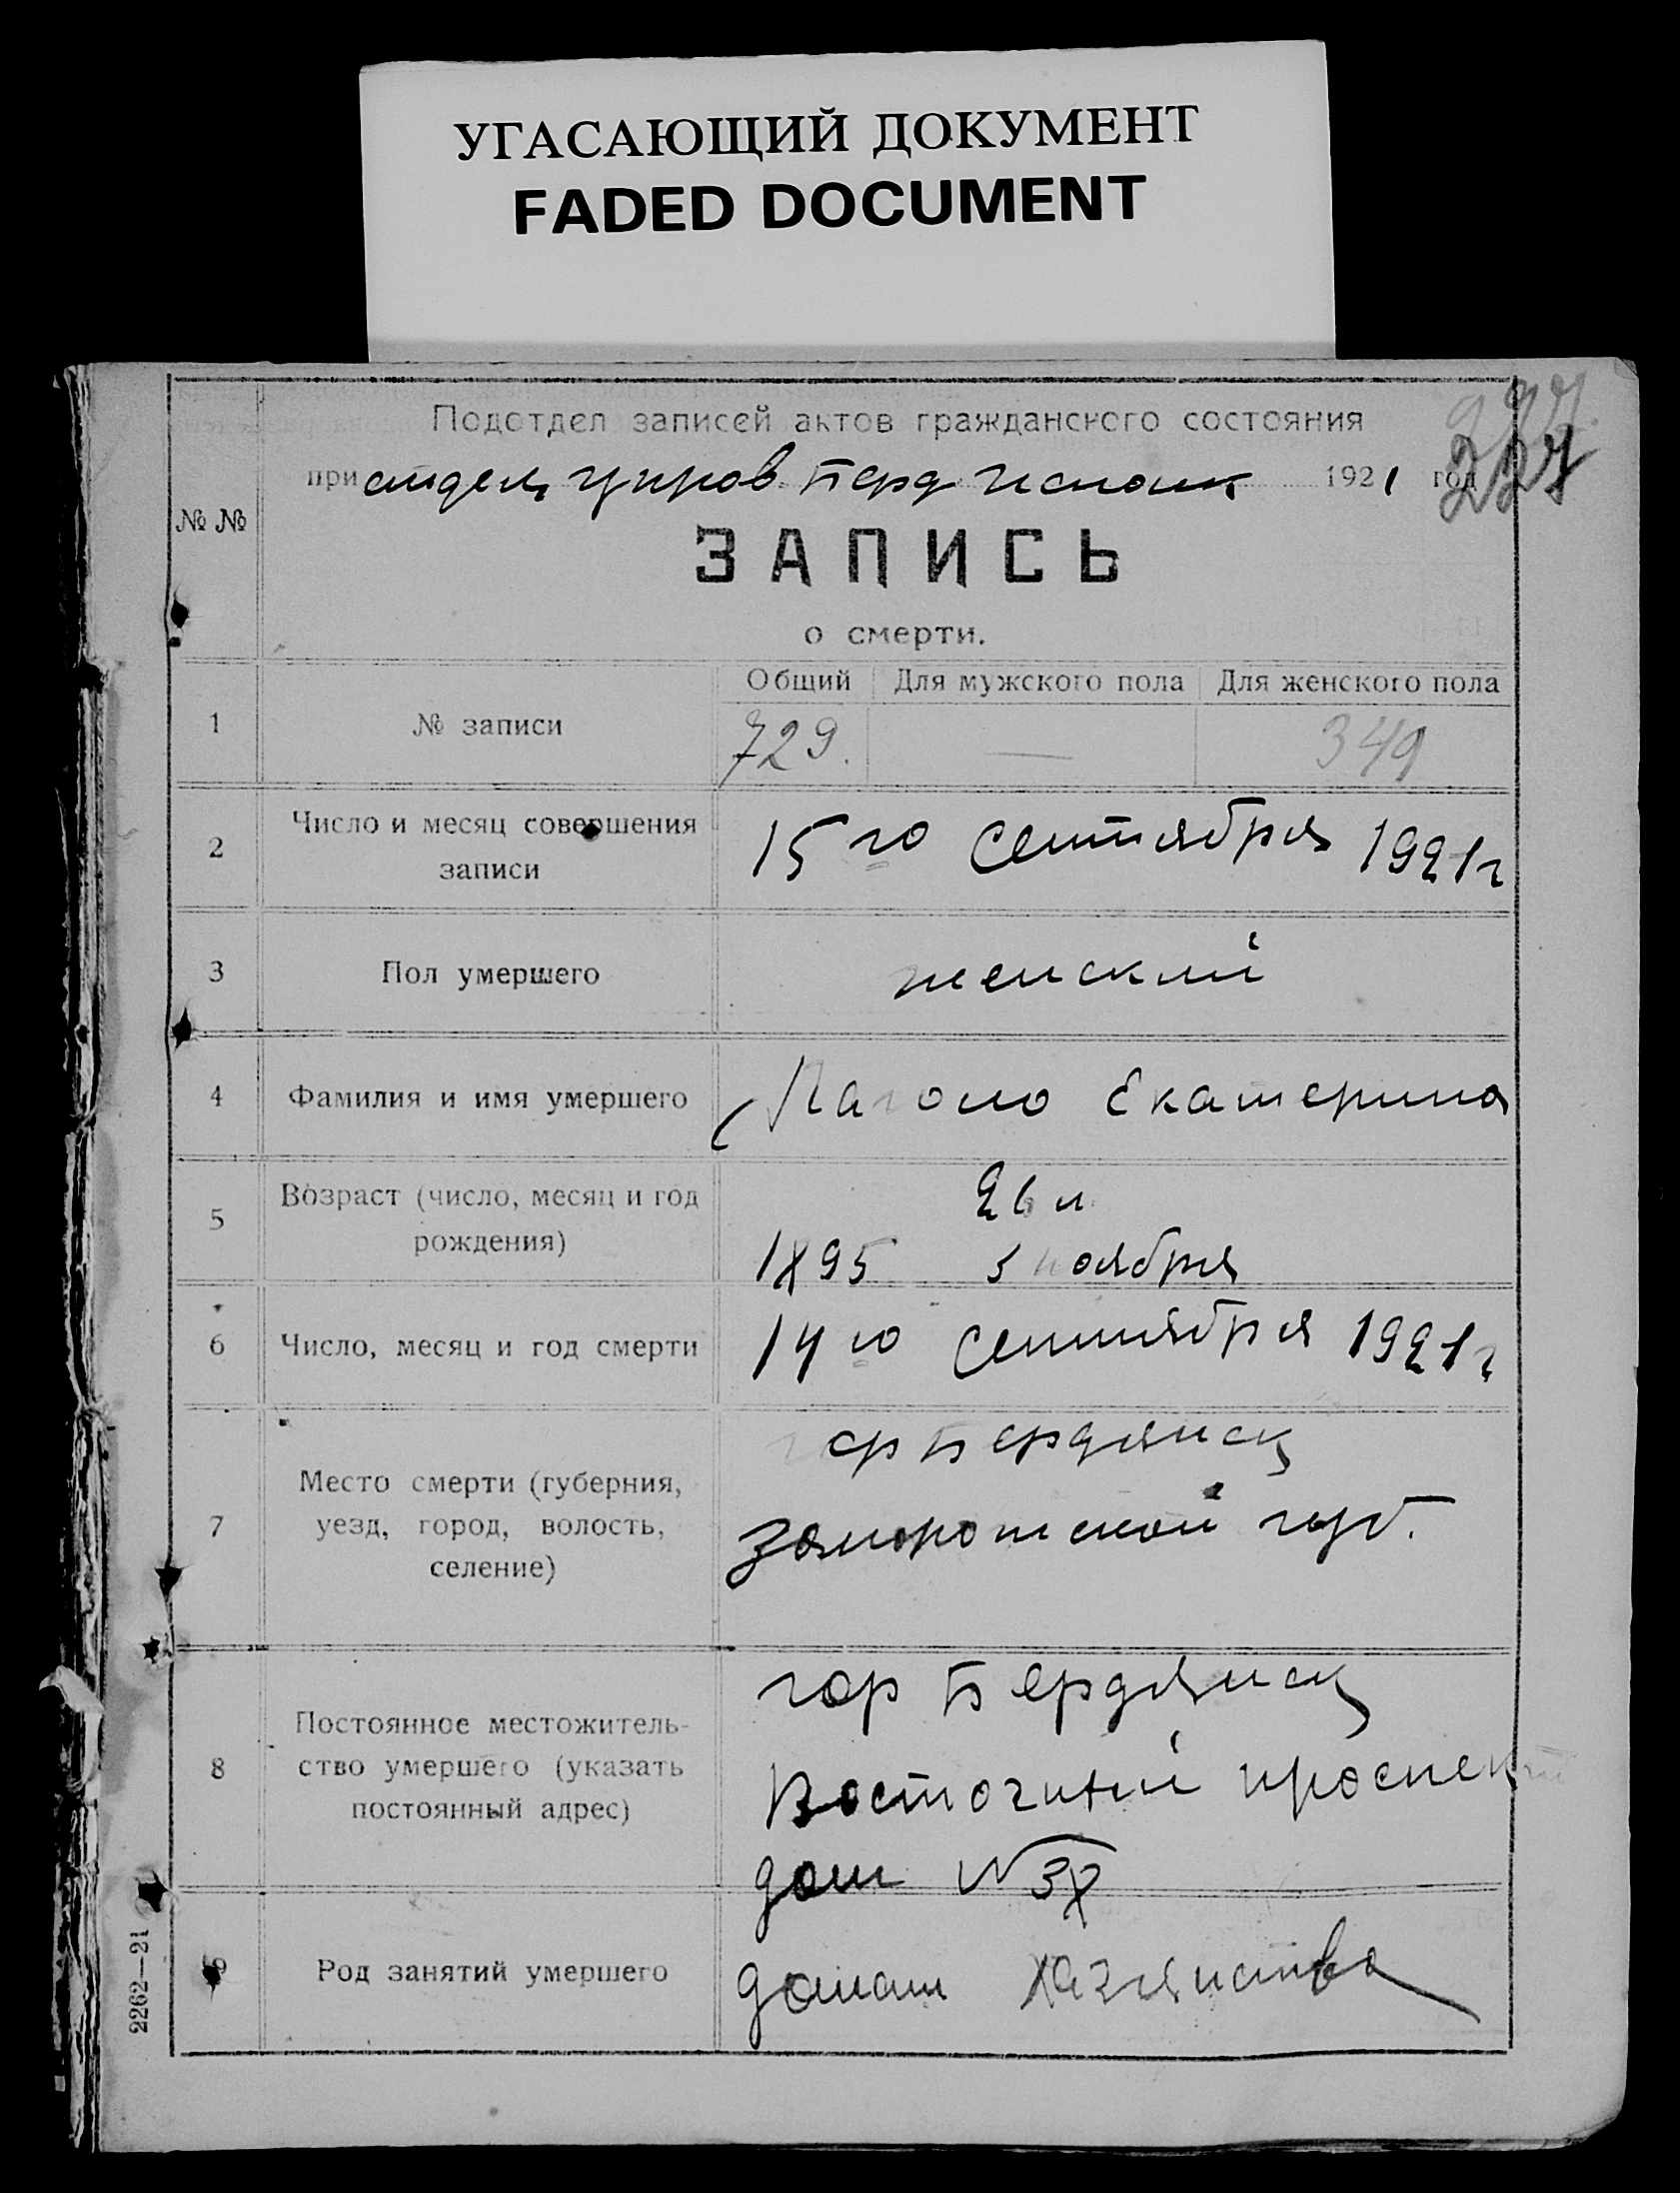 УГАСАЮЩИЙ ДОКУМЕНТ
FADED DOCUMENT
227
Подотдел записей актов гражданского состояния
при отдел управ Берд Исполк 1921 год
227
№ №
ЗАПИСЬ
о смерти.
Общий Для мужского пола Для женского пола
1 № записи 729. — 349
2 Число и месяц совершения записи 15 го Сентября 1921 г
3 Пол умершего женский
4 Фамилия и имя умершего Екатерина
5 Возраст (число, месяц и год рождения) 26 л
1895 ноября
6 Число, месяц и год смерти 14 го Сентября 1921 г
7 Место смерти (губерния, уезд, город, волость, селение) гор Бердянск
Запорожской губ.
8 Постоянное местожительство умершего (указать постоянный адрес) гор Бердянск
Восточный проспект
дом №
9 Род занятий умершего домаш хазяиства
2262—21